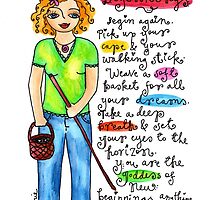 begin again.
Pick up your
cape & your
walking stick.
Weave a soft
basket for all
your dreams.
Take a deep
breath & set
your eyes to the
horizon.
you are the
goddess of
new
beginnings. anything